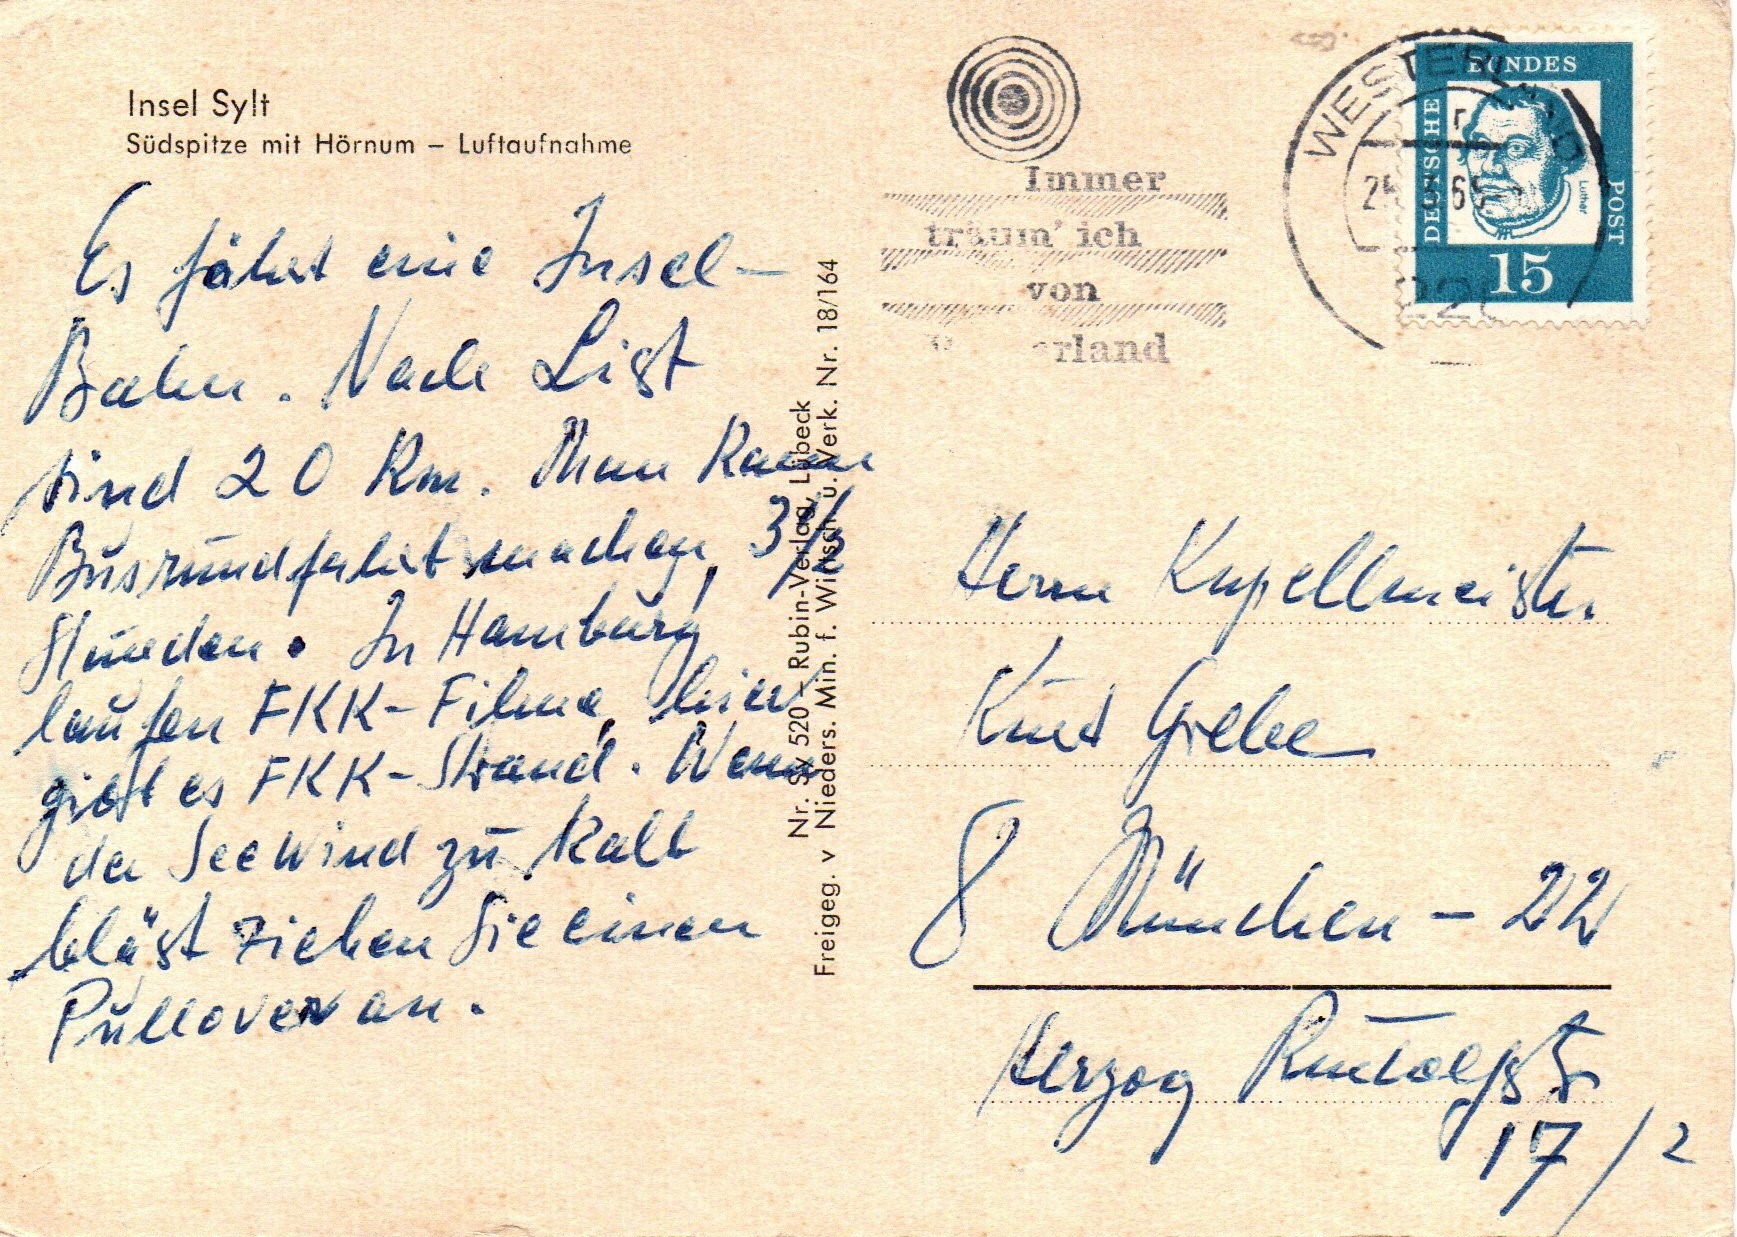 Insel Sylt
Südspitze mit Hörnum – Luftaufnahme
Es fährt eine Insel-
Bahn. Nach List
sind 20 Km. Man kann
Busrundfahrt machen, 3 1/2
Stunden. In Hamburg
laufen FKK-Filme, hier
gibt es FKK-Strand. Wenn
der Seewind zu kalt
bläst ziehen Sie einen
Pullover an.
Nr. Sy 520 – Rubin-Verlag, Lübeck
Freigeg. v Nieders. Min. f. Wirtsch. u. Verk. Nr. 18/164
Immer
träum' ich
von
erland
WESTERLAND
DEUTSCHE BUNDES POST
Luther
15
Herrn Kapellmeister
Kurt Grebe
8 München – 22
Herzog Rudolfstr
17/2